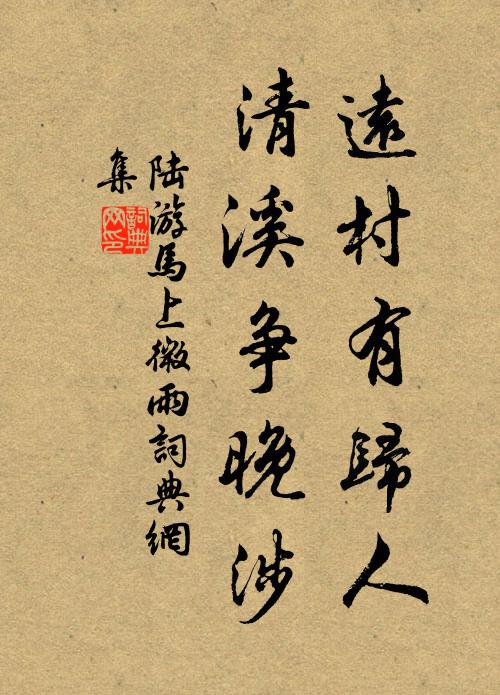 遠村有歸人
清溪爭晚涉
陸游馬上微雨詞典網
集
詞典
网印